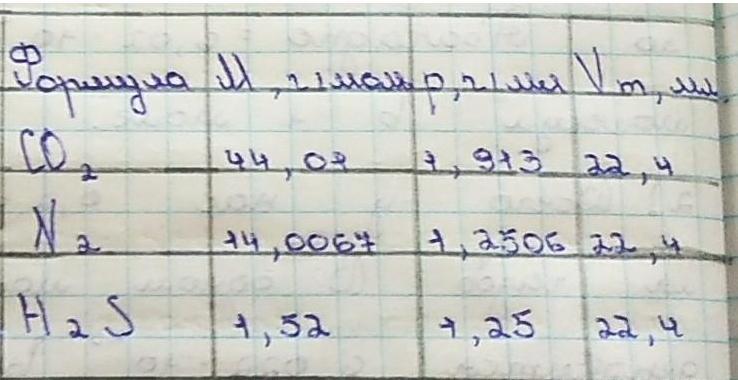 Формула M, г/моль ρ, г/мл Vm, мл
CO₂ 44,01 1,913 22,4
N₂ 14,0067 1,2506 22,4
H₂S 1,52 1,25 22,4